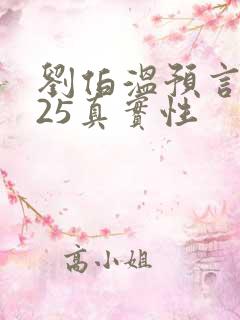 劉伯溫預言
25真實性
高小姐